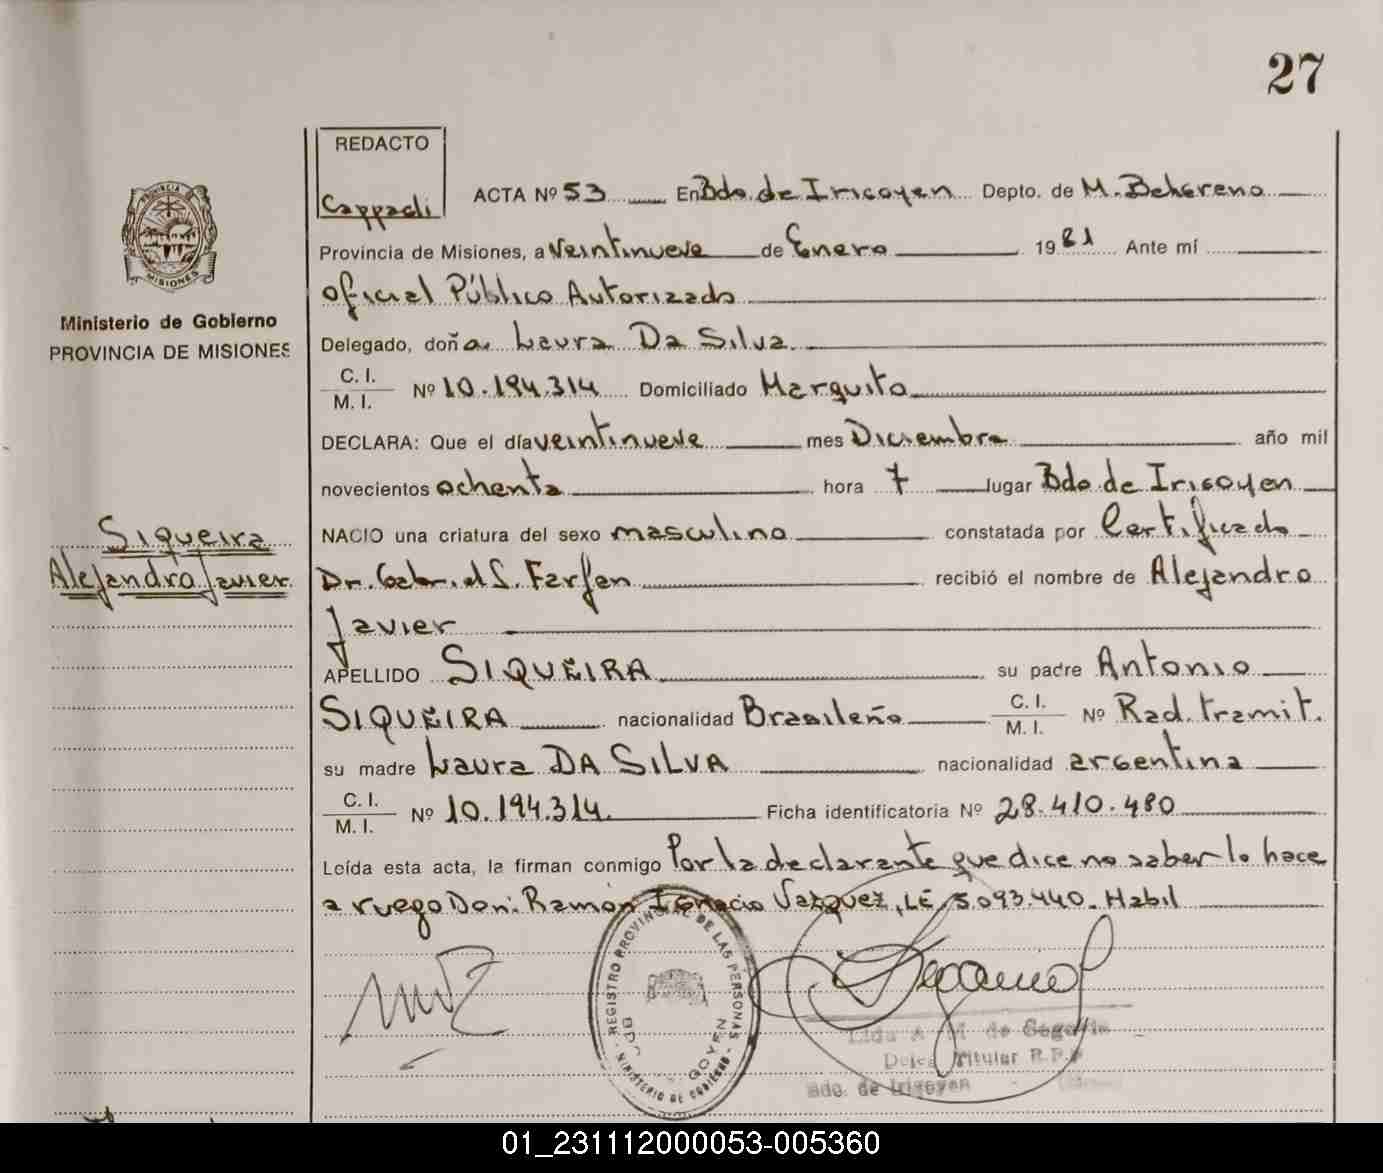 27
REDACTO
Cappadi
ACTA Nº 53 En Bdo. de Irigoyen Depto. de M. Belgrano
Provincia de Misiones, a veintinueve de Enero 1981 Ante mí
Oficial Público Autorizado
Ministerio de Gobierno
PROVINCIA DE MISIONES
Delegado, doña Laura Da Silva
C. I.
M. I. Nº 10.194.314 Domiciliado Marquita
DECLARA: Que el día veintinueve mes Diciembre año mil
novecientos ochenta hora 7 lugar Bdo de Irigoyen
Siqueira
Alejandro Javier
NACIO una criatura del sexo masculino constatada por Certificado
Dr. Gabriel S. Farfan recibió el nombre de Alejandro
Javier
APELLIDO SIQUEIRA su padre Antonio
SIQUEIRA nacionalidad Brasileño C. I. M. I. Nº Rad. tramit.
su madre Laura DA SILVA nacionalidad argentina
C. I.
M. I. Nº 10.194.314 Ficha identificatoria Nº 28.410.480
Leída esta acta, la firman conmigo Por la declarante que dice no saber lo hace
a ruego Don: Ramón Ignacio Vazquez, LE 5.093.440. Habil
REGISTRO PROVINCIAL DE LAS PERSONAS
MINISTERIO DE GOBIERNO
BDO GOYEN
Lida A M de Segovia
Deleg Titular R.P.P
Bdo. de Irigoyen
01_231112000053-005360